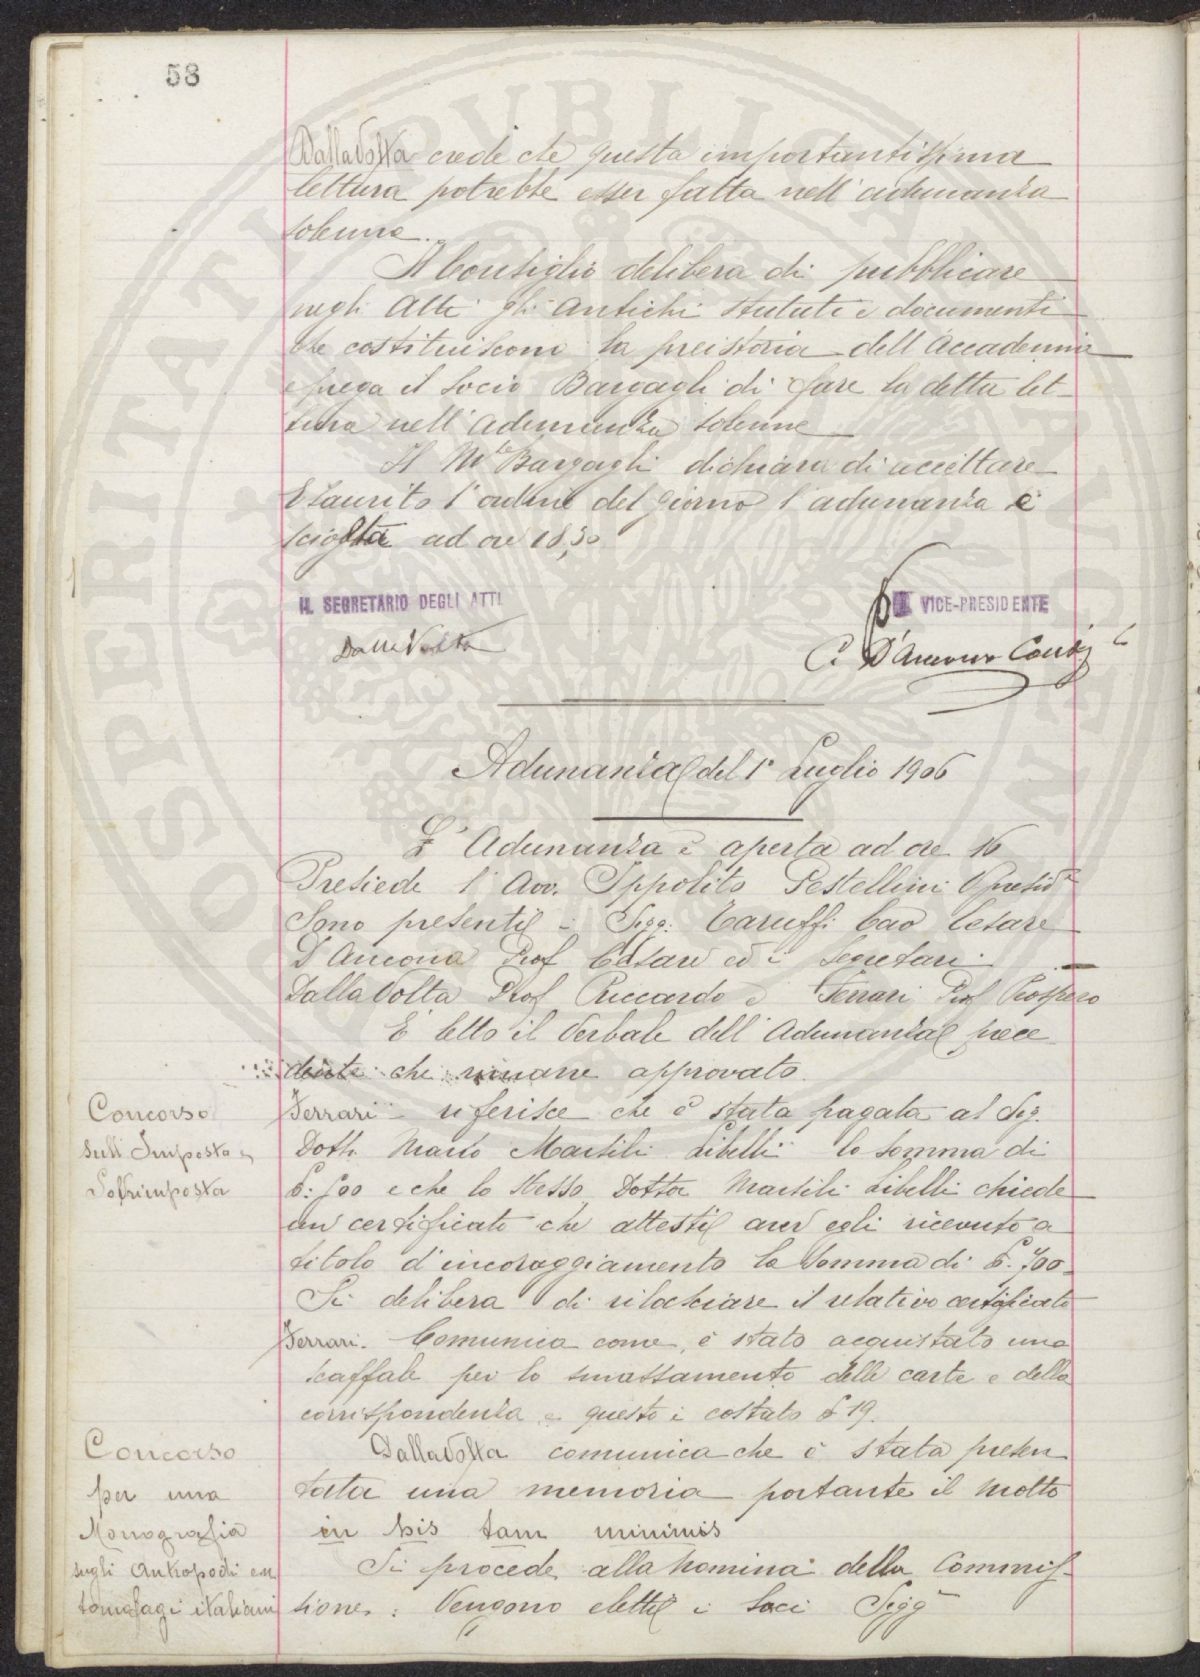 58
Dalla Volta crede che questa importantissima
lettura potrebbe esser fatta nell'adunanza
solenne.
Il Consiglio delibera di pubblicare
negli Atti gli antichi statuti e documenti
che costituiscono la preistoria dell'Accademia
e prega il socio Bargagli di fare la detta let-
tura nell'adunanza solenne
Il M.se Bargagli dichiara di accettare
Esaurito l'ordine del giorno l'adunanza è
sciolta ad ore 18,30.
IL SEGRETARIO DEGLI ATTI
Dalla Volta
VICE-PRESIDENTE
C. D'Ancona
Adunanza del 1° Luglio 1906
L'Adunanza è aperta ad ore 16
Presiede l'Avv. Ippolito Pestellini V. presid.e
Sono presenti i Sigg: Taruffi Cav Cesare
D'Ancona Prof Cesare ed i Segretari
Dalla Volta Prof Riccardo e Ferrari Prof Prospero
E' letto il Verbale dell'Adunanza prece
dente che rimane approvato.
Concorso
sull'Imposta e
Sovrimposta
Ferrari riferisce che è stata pagata al Sig.
Dott. Mario Marsili Libelli la somma di
£: 700 e che lo stesso Dottor Marsili Libelli chiede
un certificato che attesti aver egli ricevuto a
titolo d'incoraggiamento la somma di £. 700
Si delibera di rilasciare il relativo certificato
Ferrari. Comunica come è stato acquistato uno
scaffale per lo smassamento delle carte e della
corrispondenza e questo è costato £ 19.
Concorso
per una
Monografia
sugli Antropodi en
tomofagi italiani
Dalla Volta comunica che è stata presen
tata una memoria portante il motto
in his tam minimis
Si procede alla nomina della Commis-
sione: Vengono eletti i Soci Sigg